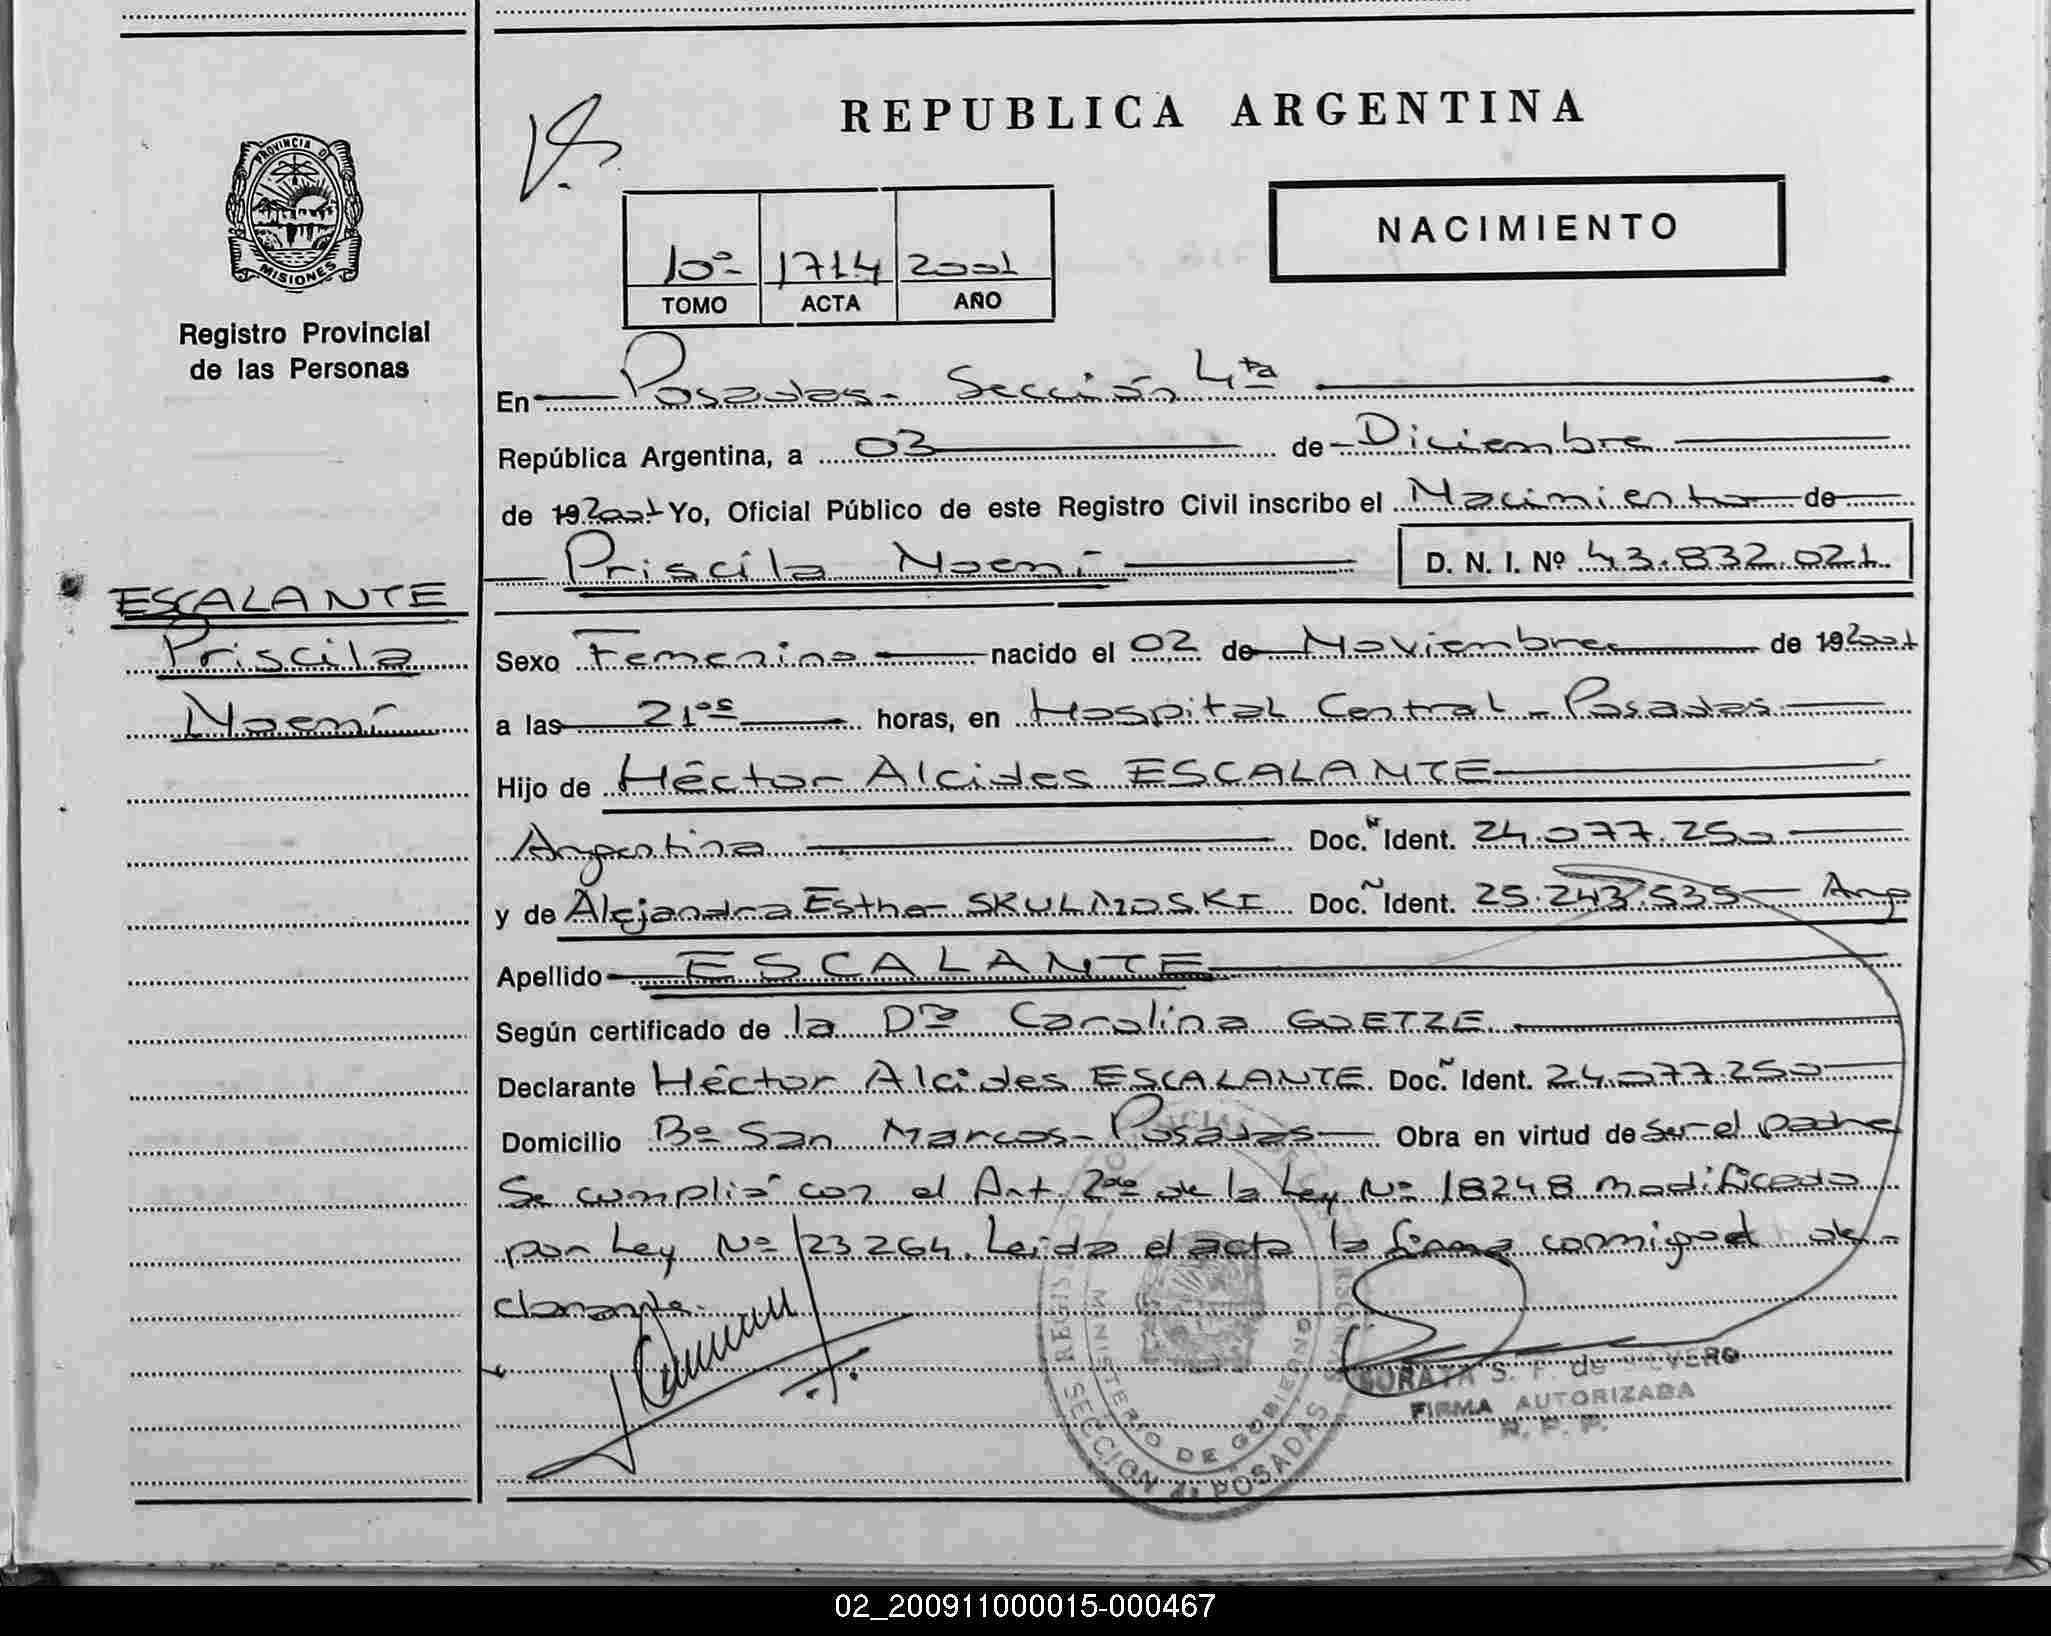 REPUBLICA ARGENTINA
PROVINCIA D
MISIONES
Registro Provincial
de las Personas
NACIMIENTO
10º 1714 2001
TOMO ACTA AÑO
En Posadas- Sección 4ta
República Argentina, a 03 de Diciembre
de 19 2001 Yo, Oficial Público de este Registro Civil inscribo el Nacimiento de
Priscila Noemí D. N. I. Nº 43.832.021
ESCALANTE
Priscila
Noemí
Sexo Femenino nacido el 02 de Noviembre de 19 2001
a las 21 05 horas, en Hospital Central - Posadas
Hijo de Héctor Alcides ESCALANTE
Argentina Doc. Ident. 24.077.250
y de Alejandra Esther SKULMOSKI Doc. Ident. 25.243.535 - Arg
Apellido ESCALANTE
Según certificado de la Dra Carolina GOETZE
Declarante Héctor Alcides ESCALANTE Doc. Ident. 24.077.250
Domicilio Bº San Marcos- Posadas Obra en virtud de ser el padre
Se cumplió con el Art. 2do de la Ley Nº 18248 modificado
por Ley Nº 23264. Leida el acta la firma conmigo el de-
clarante.
MINISTERIO DE GOBIERNO
SECCION 4ª POSADAS
S. F. de
FIRMA AUTORIZADA
R. P. P.
02_200911000015-000467